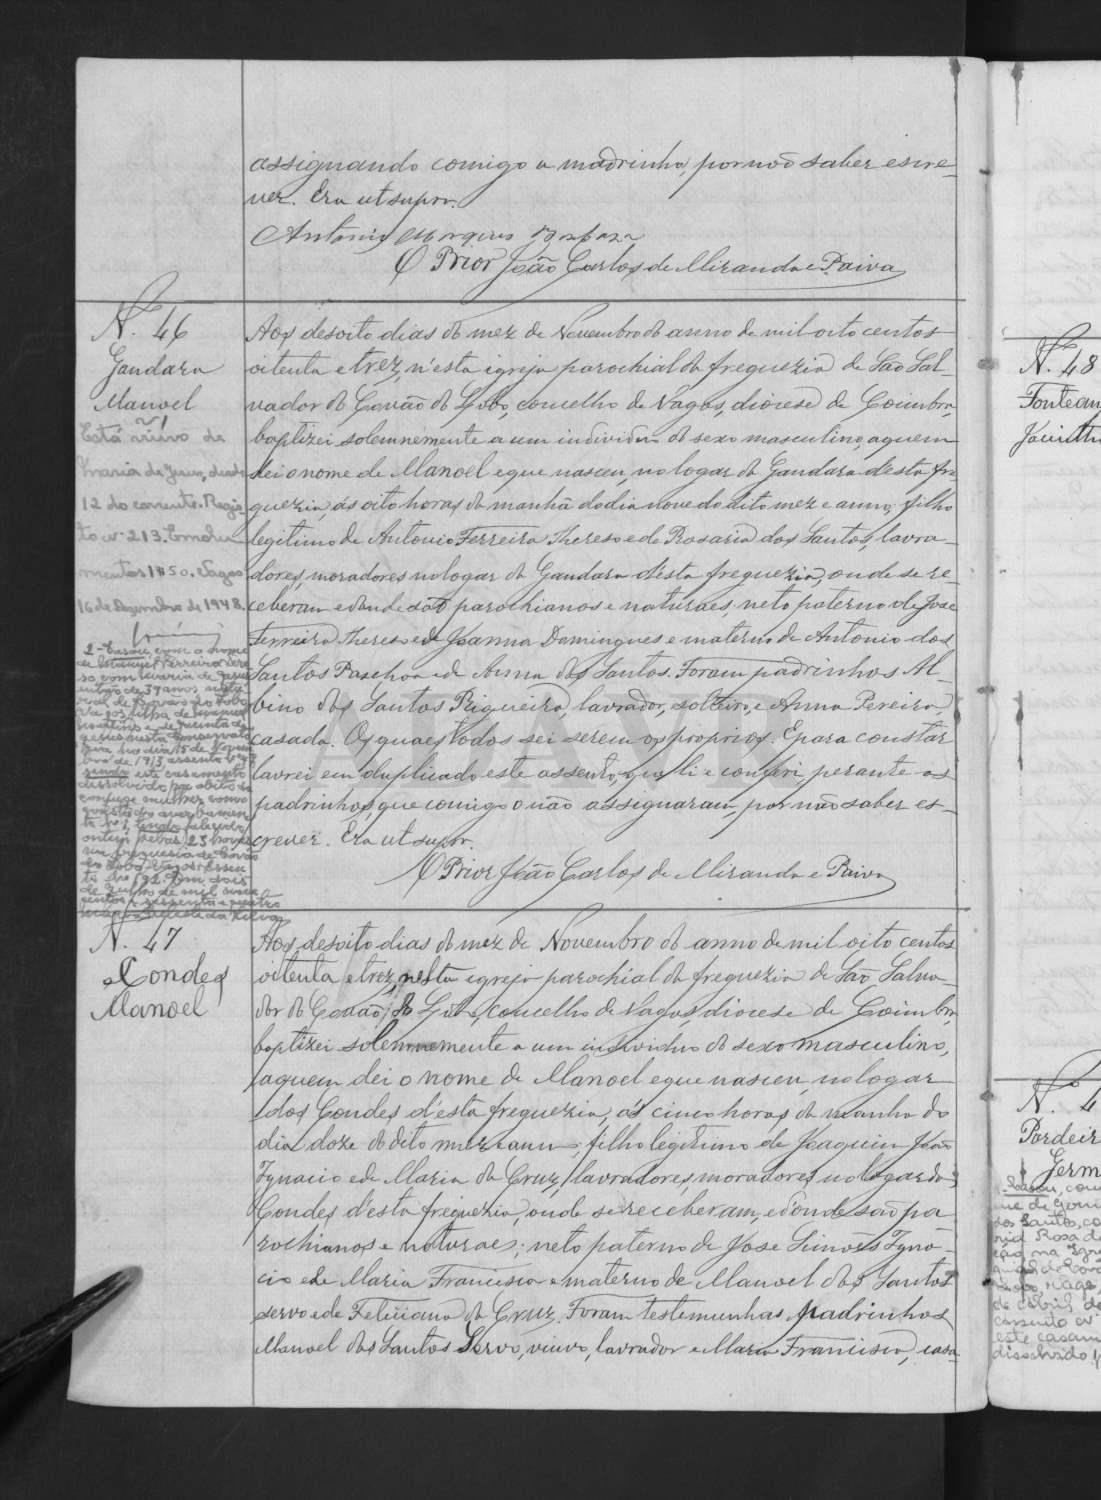 assignando comigo a madrinha, por não saber escre-
ver. Era ut supra.
Antonio Marques
O Prior João Carlos de Miranda e Paiva
N.º 46
Gandara
Manoel
Aos desoito dias do mez de Novembro do anno de mil oito centos
oitenta e trez, n'esta igreja parochial da freguezia de São Sal-
vador do Covão do Lobo, concelho de Vagos, diocese de Coimbra,
baptizei solemnemente a um individuo do sexo masculino, a quem
dei o nome de Manoel e que nasceu, no logar da Gandara d'esta fre-
guezia, ás oito horas da manhã do dia nove do dito mez e anno, filho
legitimo de Antonio Ferreira Thereso e de Rosaria dos Santos, lavra-
dores, moradores no logar da Gandara d'esta freguezia, onde se re-
ceberam e donde são parochianos e naturaes, neto paterno de Jose
Ferreira Thereso e de Joanna Domingues e materno de Antonio dos
Santos Paschoa e de Anna dos Santos. Foram padrinhos Al-
bino dos Santos Rigueira, lavrador, solteiro, e Anna Pereira,
casada. Os quaes todos sei serem os proprios. E para constar
lavrei em duplicado este assento, que li e conferi perante os
padrinhos, que comigo o não assignaram, por não saber es-
crever. Era ut supra.
O Prior João Carlos de Miranda e Paiva
1
Está viuvo de
Maria de Jesus, desde
12 do corrente. Regis-
to nº 213. Emolu-
mentos 1$50. Vagos
16 de Dezembro de 1948.
2 - Casou, com o nome
de Manuel Ferreira Tere-
so com Maria de Jesus
de 37 anos natu-
ral de Covão do Lobo
filha de
e de Jacinta de
Jesus nesta Conservató-
ria no dia 15 de Novem-
bro de 1913
este casamento
dissolvido por óbito do
conjuge mulher como
consta do averbamen-
to nº 1,
ontem pelas 23 horas
na freguesia de Covão
do Lobo
to nº 92. Em dois
de Junho de mil nove
centos e sessenta e quatro
N.º 47
Condes
Manoel
Aos desoito dias do mez de Novembro do anno de mil oito centos
oitenta e trez, nesta igreja parochial da freguezia de São Salva-
dor do Covão do Lobo, concelho de Vagos, diocese de Coimbra,
baptizei solemnemente a um individuo do sexo masculino,
a quem dei o nome de Manoel e que nasceu, no logar
dos Condes d'esta freguezia, ás cinco horas da manhã do
dia doze do dito mez e anno, filho legitimo de Joaquim João
Ignacio e de Maria da Cruz, lavradores, moradores no logar dos
Condes d'esta freguezia, onde se receberam, e donde são pa-
rochianos e naturaes; neto paterno de Jose Simões Igna-
cio e de Maria Francisca e materno de Manoel dos Santos
servo e de Feliciana da Cruz. Foram testemunhas padrinhos
Manoel dos Santos Servo, viuvo, lavrador e Maria Francisca, casa-
N.º 48
Jacinth
N.º 4
Germ
Casou, com
dos Santos, co
Rosa de
de Abril de
este casam
dissolvido p